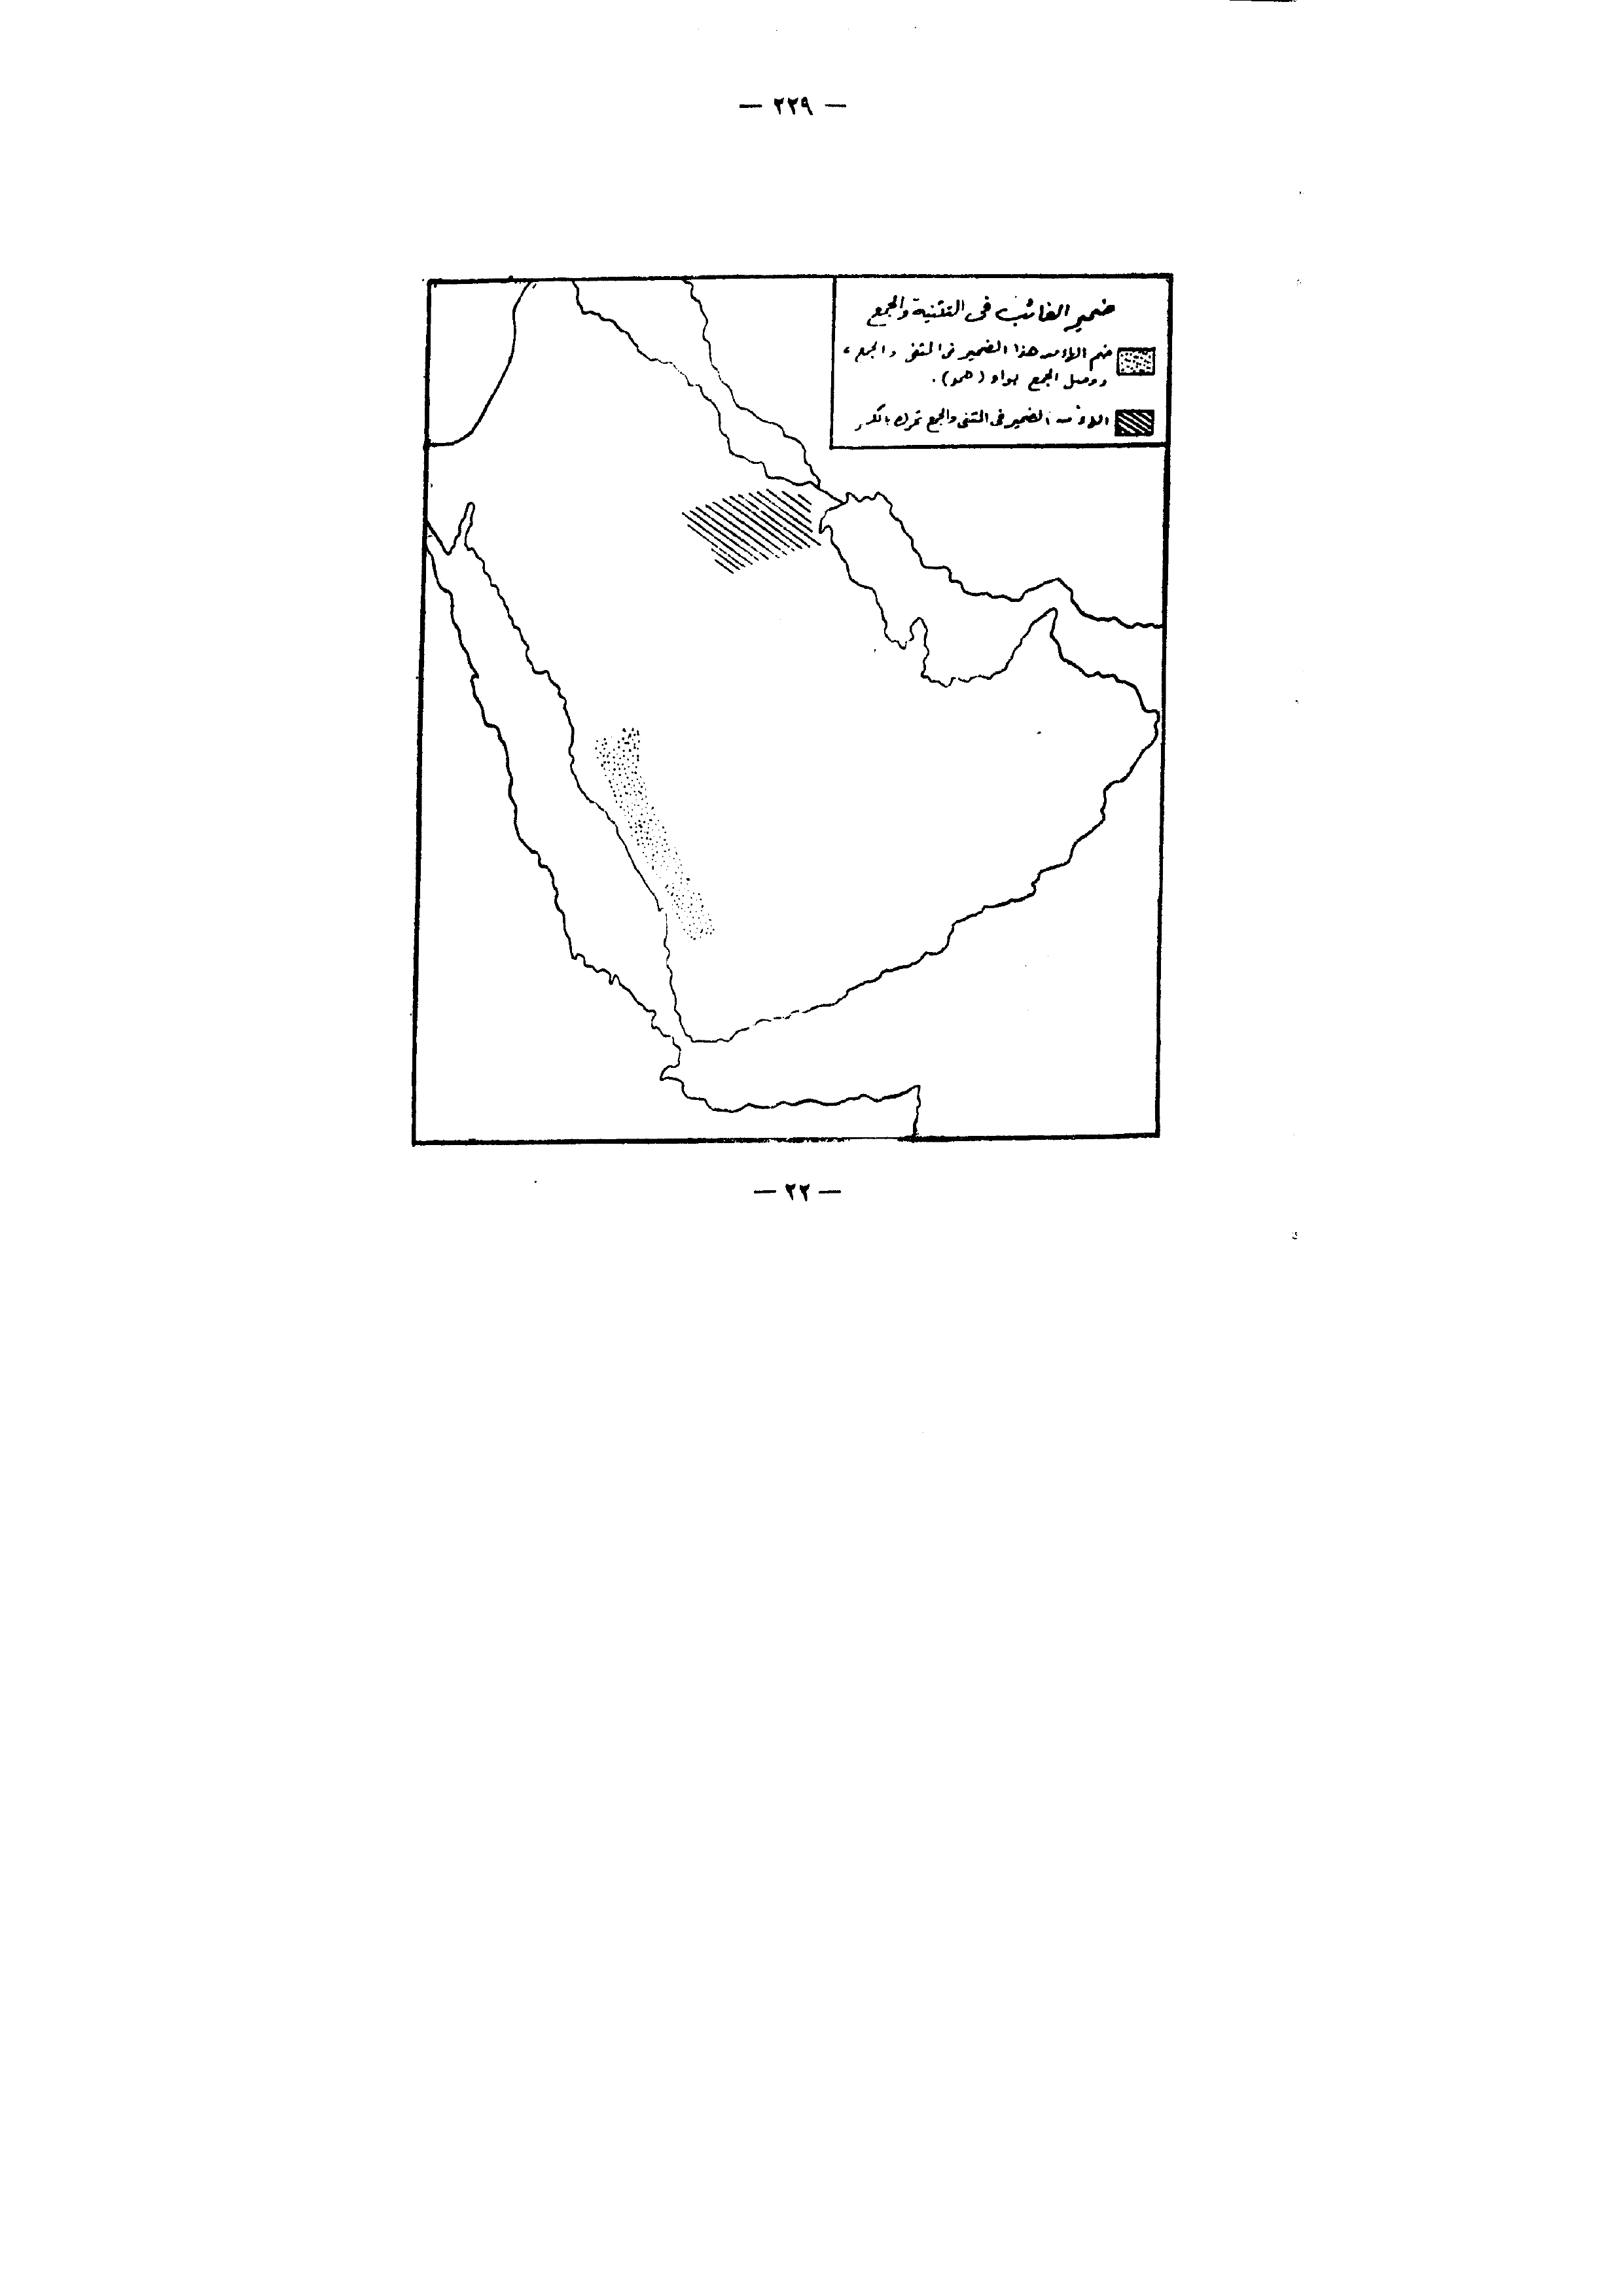 — ٢٢٩ —
ضمير الغائب فى التثنية والجمع
ضم الهاء من هذا الضمير فى المثنى والجمع ،
ووصل الجمع بواو (همو) .
الهاء من الضمير فى المثنى والجمع تحرك بالكسر
— ٢٢ —